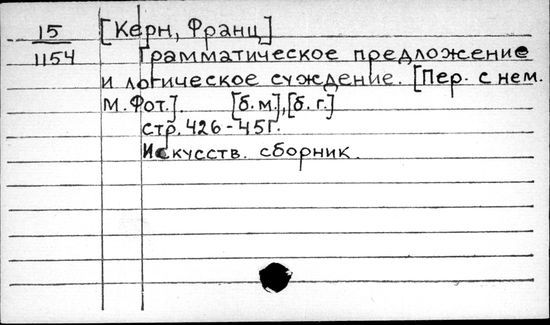 15 [Керн, Франц]
1154 Грамматическое предложение
и логическое суждение. [Пер. с нем.
М. Фот.]. [б. м], [б. г.]
стр. 426-451.
Искусств. сборник.